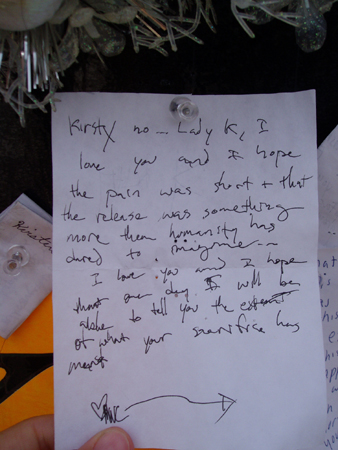 Kirsty no... Lady K, I
love you and I hope
the pain was short + that
the release was something
more then humanity has
dared to imagine...
I love you and I hope
that one day I will be
able to tell you the extent
of what your sacrifice has
meant